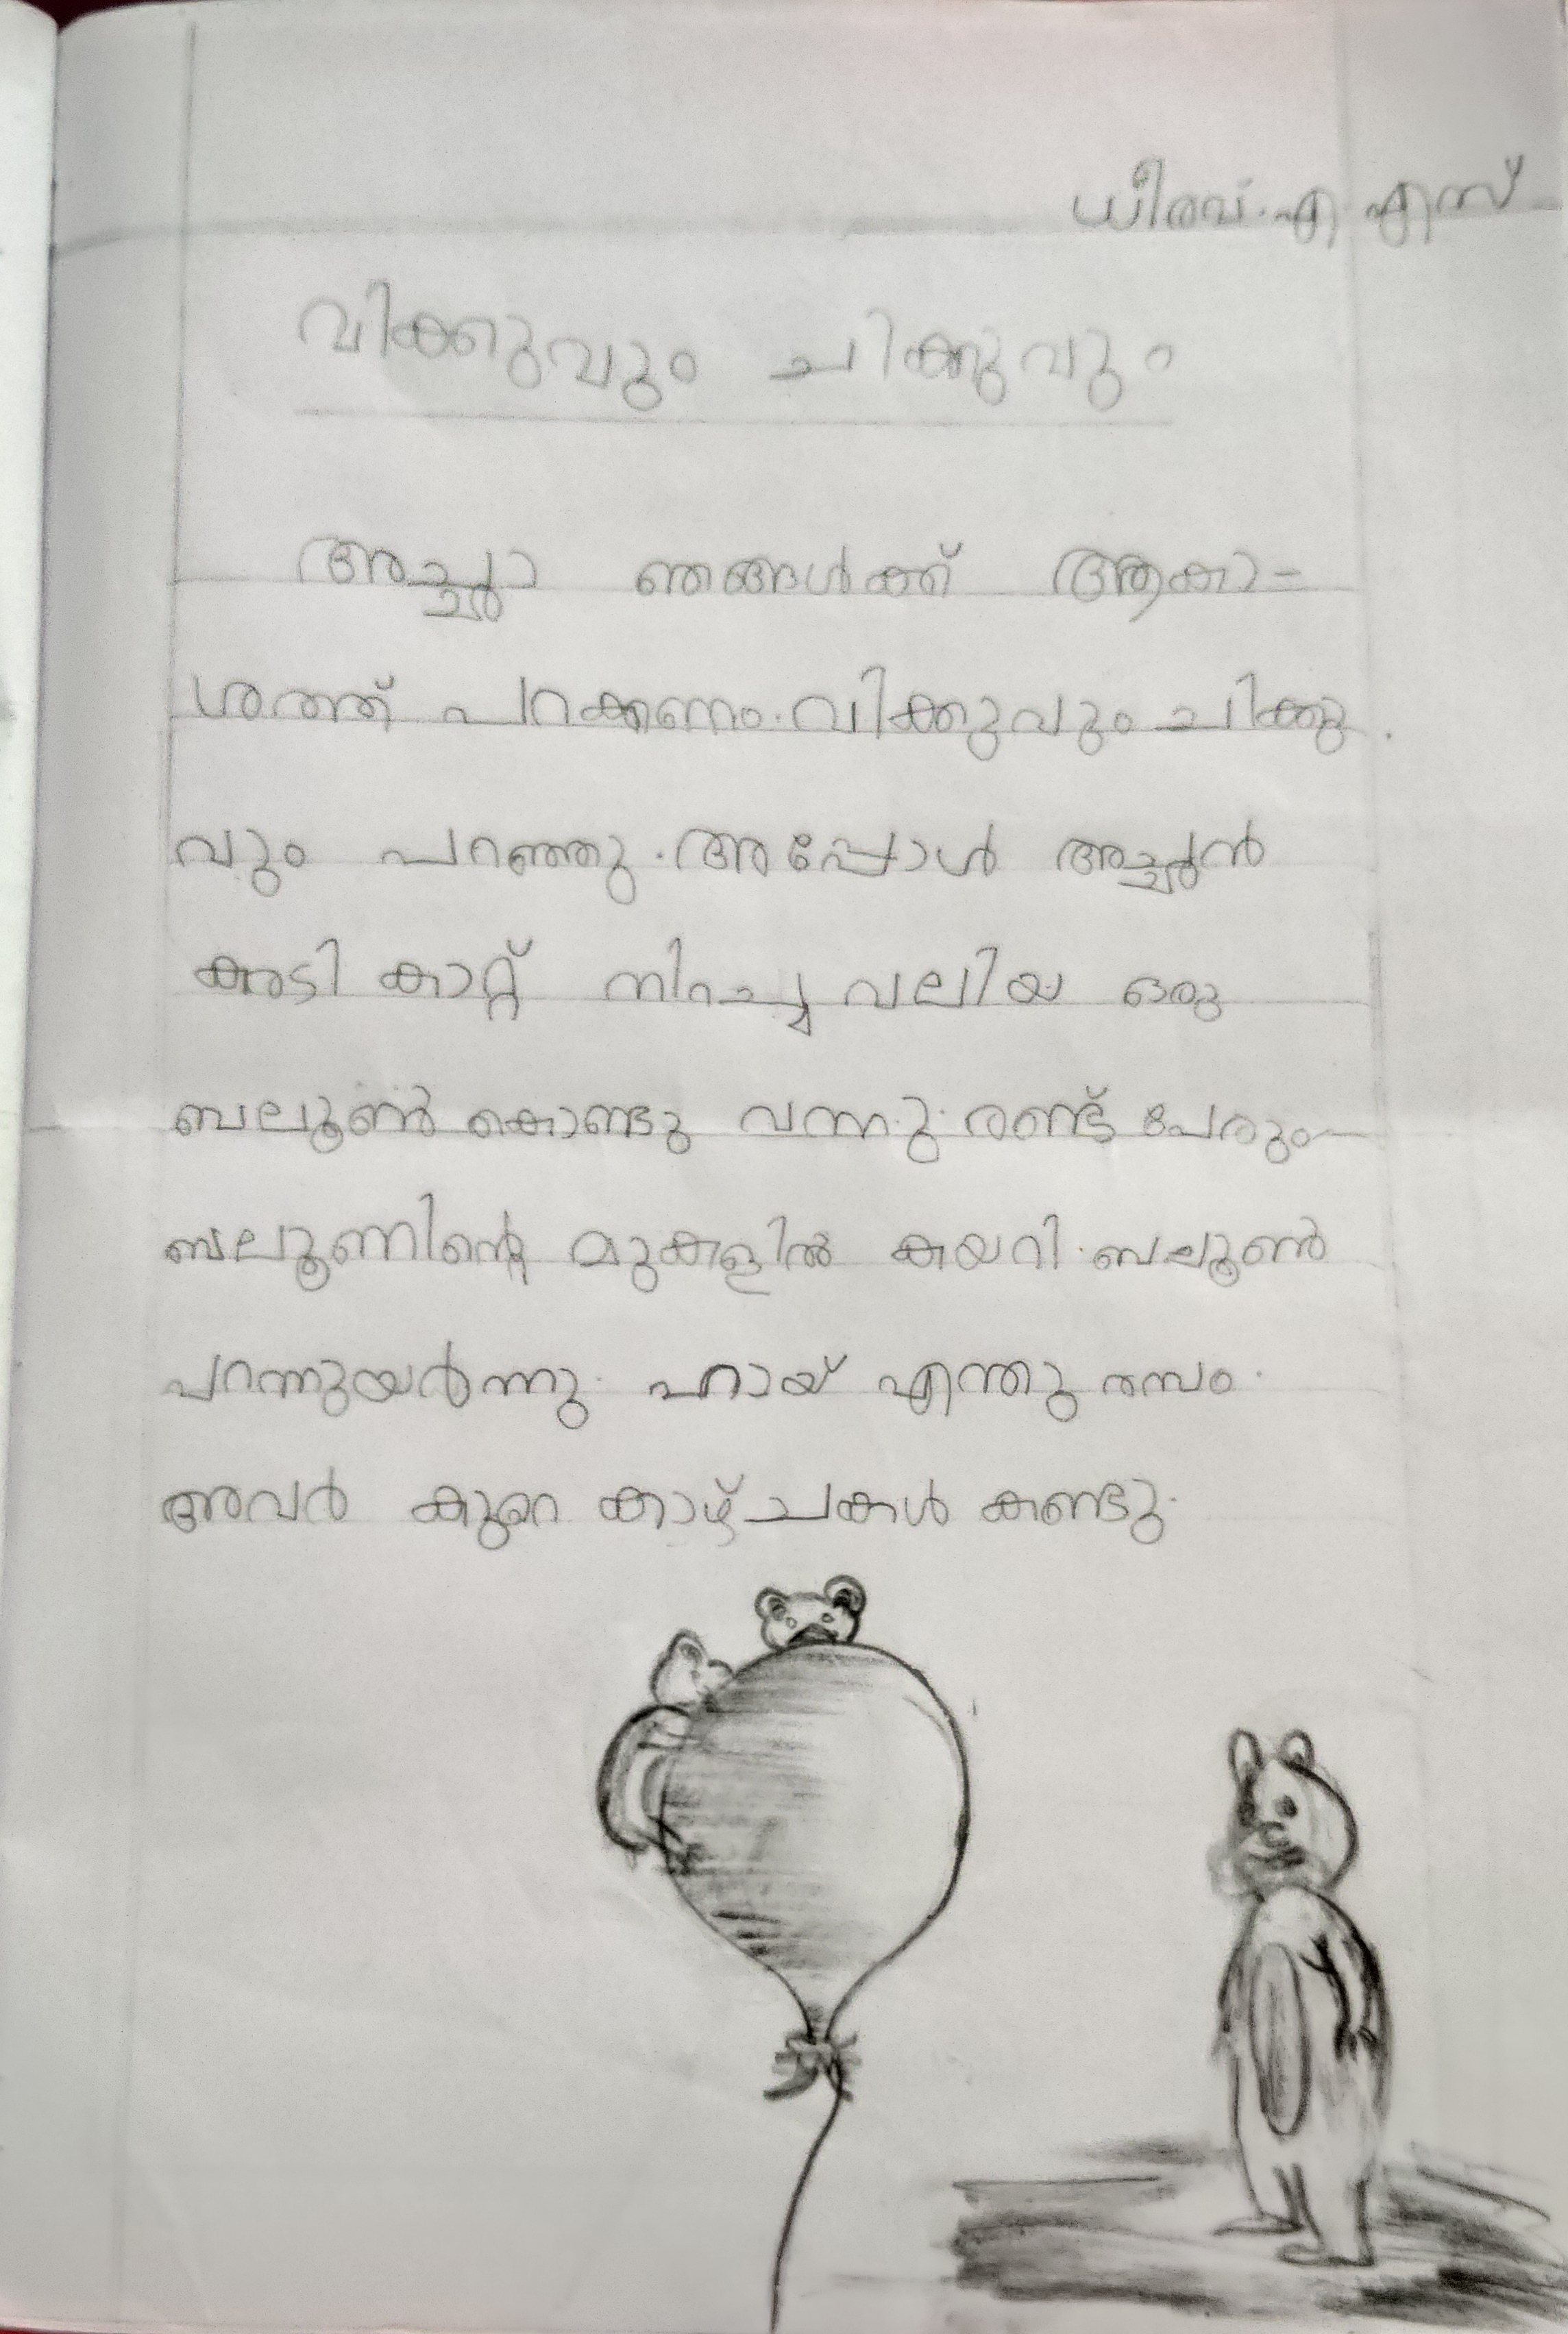 ധീരവ്.എ എസ്
വിക്കുവും ചിക്കുവും
അച്ഛാ ഞങ്ങൾക്ക് ആകാ-
ശത്ത് പറക്കണം. വിക്കുവും ചിക്കു
വും പറഞ്ഞു. അപ്പോൾ അച്ഛൻ
കരടി കാറ്റ് നിറച്ച വലിയ ഒരു
ബലൂൺ കൊണ്ടു വന്നു. രണ്ട് പേരും
ബലൂണിന്റെ മുകളിൽ കയറി. ബലൂൺ
പറന്നുയർന്നു. ഹായ് എന്തു രസം.
അവർ കുറെ കാഴ്ചകൾ കണ്ടു.